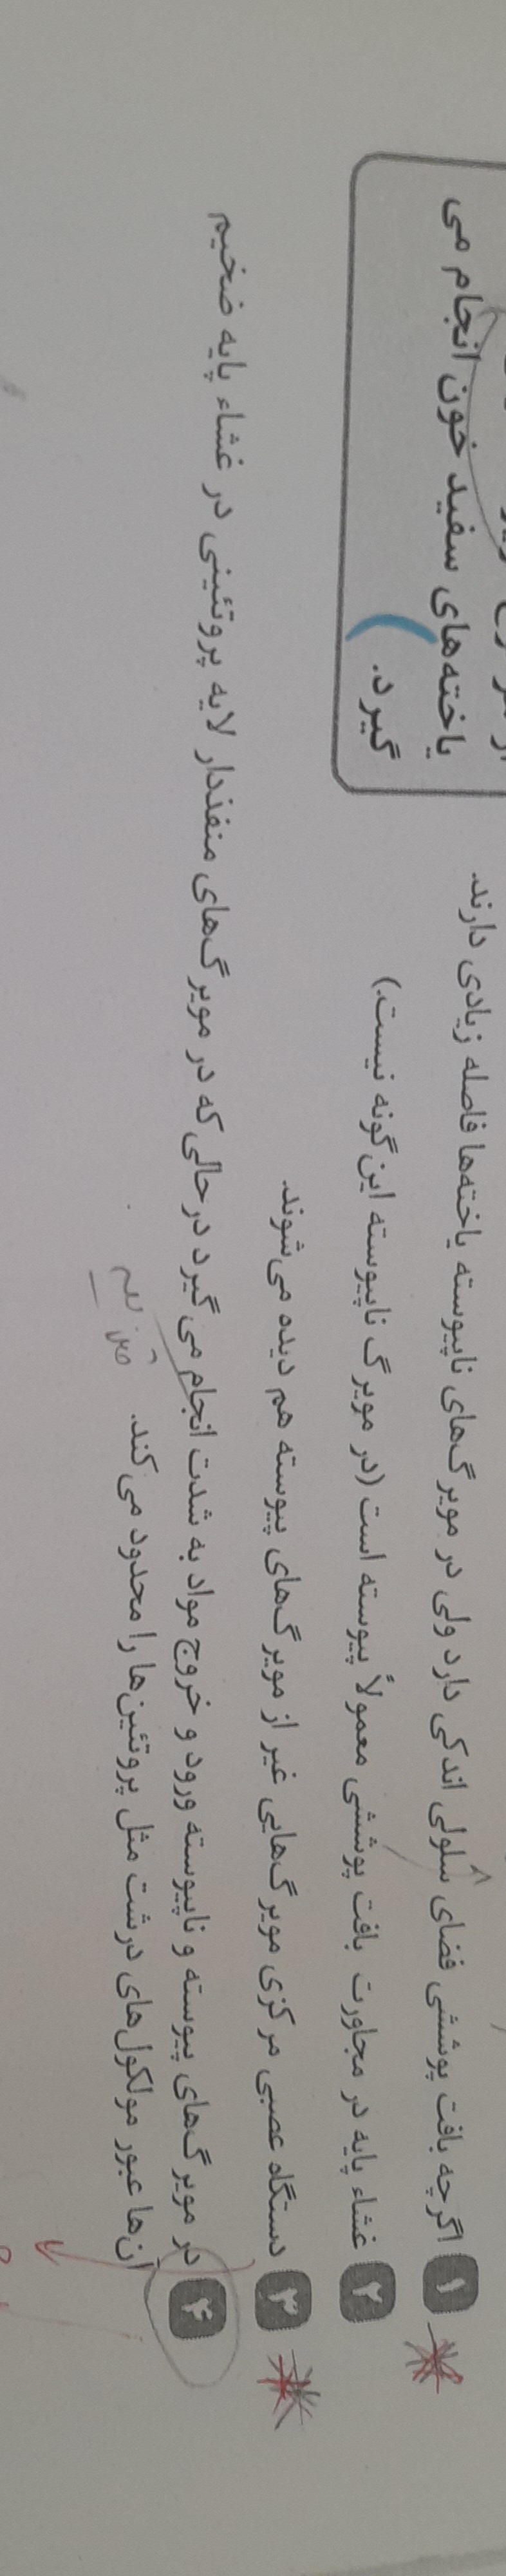 یاخته‌های سفید خون انجام می
گیرد.
۱ اگرچه بافت پوششی فضای سلولی اندکی دارد ولی در مویرگ‌های ناپیوسته یاخته‌ها فاصله زیادی دارند.
۲ غشاء پایه در مجاورت بافت پوششی معمولاً پیوسته است (در مویرگ ناپیوسته این گونه نیست.)
۳ دستگاه عصبی مرکزی مویرگ‌هایی غیر از مویرگ‌های پیوسته هم دیده می‌شوند.
۴ در مویرگ‌های پیوسته و ناپیوسته ورود و خروج مواد به شدت انجام می‌گیرد درحالی‌که در مویرگ‌های منفذدار لایه پروتئینی در غشاء پایه ضخیم
آن‌ها عبور مولکول‌های درشت مثل پروتئین‌ها را محدود می‌کند.